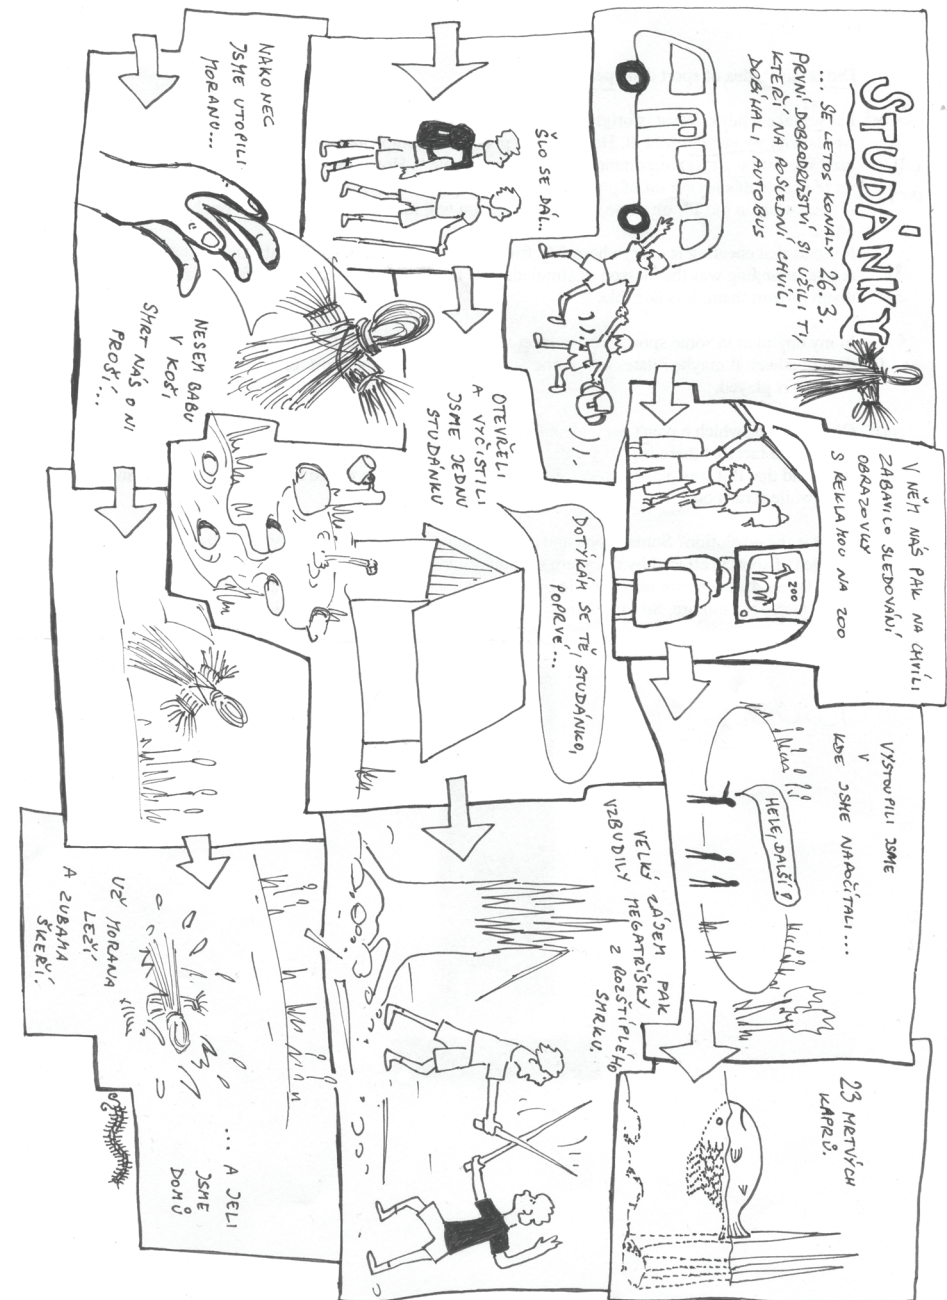 STUDÁNKY
... SE LETOS KONALY 26. 3.
PRVNÍ DOBRODRUŽSTVÍ SI UŽILI TI,
KTEŘÍ NA POSLEDNÍ CHVÍLI
DOBÍHALI AUTOBUS
V NĚM NÁS PAK NA CHVÍLI
ZABAVILO SLEDOVÁNÍ
OBRAZOVKY
S REKLAMOU NA ZOO
ZOO
VYSTOUPILI JSME
V
KDE JSME NAPOČÍTALI...
HELE, DALŠÍ!
23 MRTVÝCH
KAPRŮ.
ŠLO SE DÁL...
OTEVŘELI
A VYČISTILI
JSME JEDNU
STUDÁNKU
DOTÝKÁM SE TĚ, STUDÁNKO,
POPRVÉ...
VELKÝ ZÁJEM PAK
VZBUDILY MEGATŘÍSKY
Z ROZŠTÍPLÉHO
SMRKU.
NAKONEC
JSME UTOPILI
MORANU...
NESEM BABU
V KOŠI,
SMRT NÁS O NI
PROSÍ...
UŽ MORANA
LEŽÍ
A ZUBAMA
ŠKEŘÍ.
... A JELI
JSME
DOMŮ